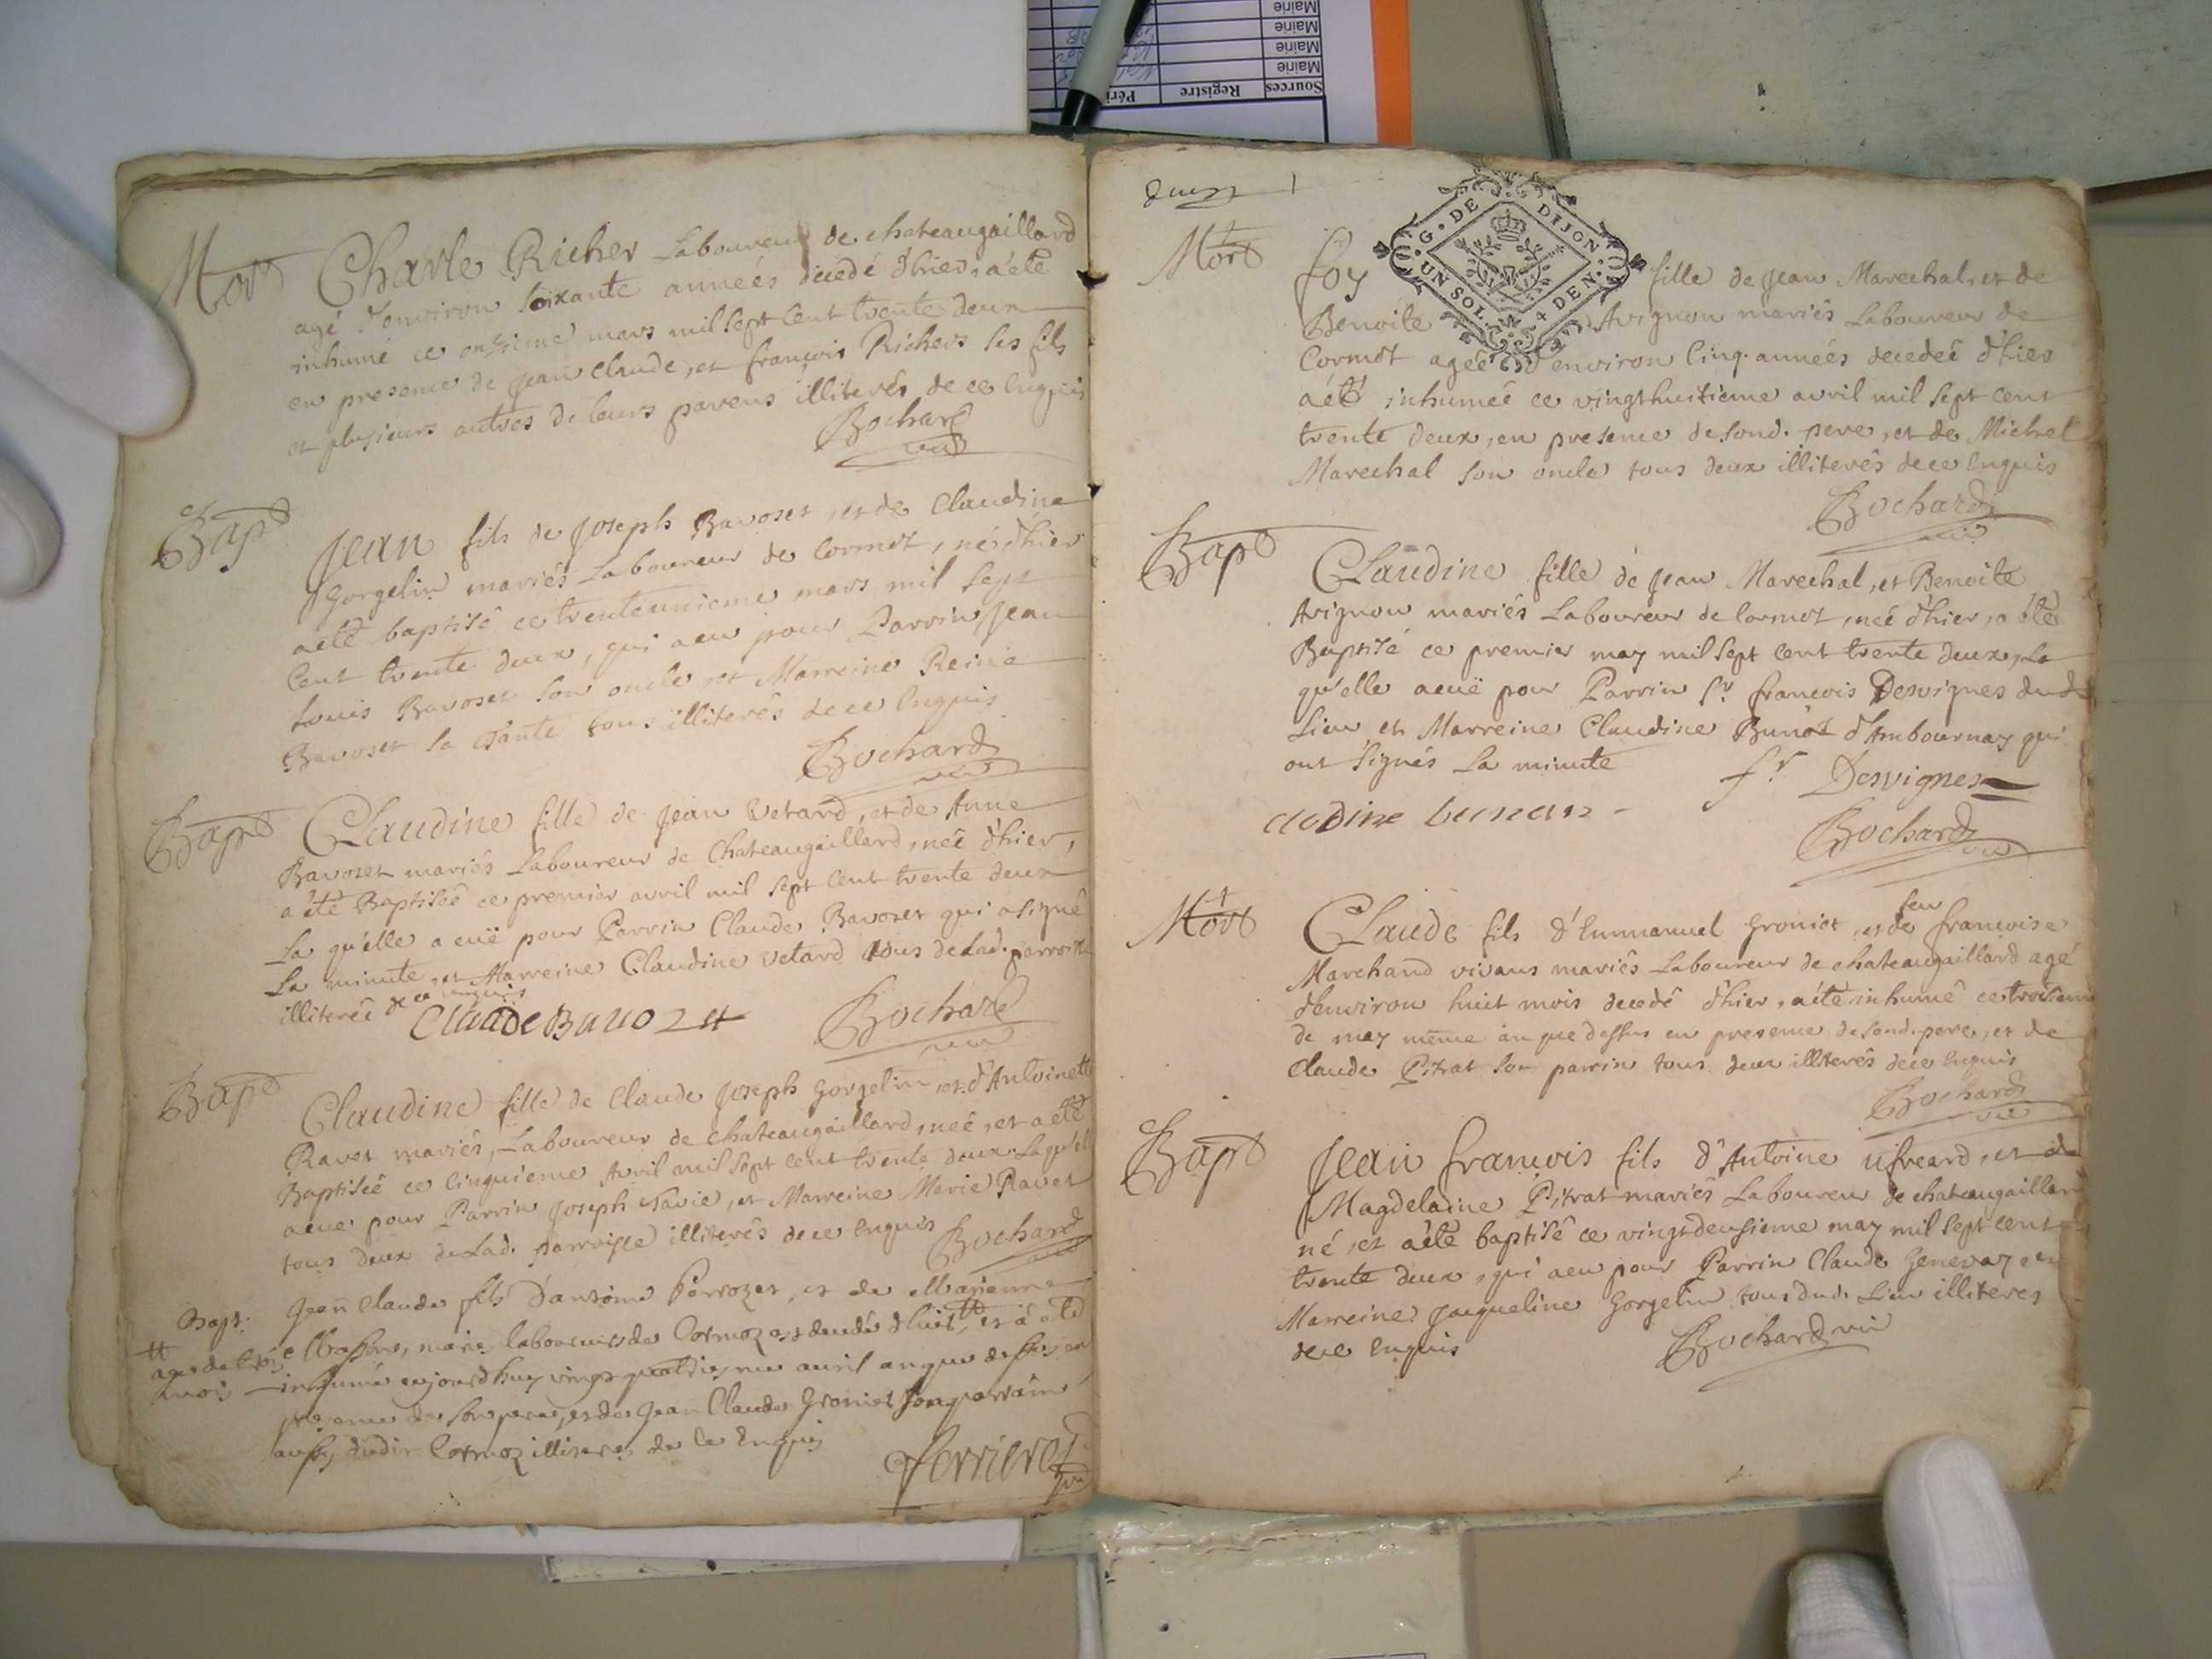 Sources Registre Péri
Mairie
Mairie
Mairie
Mairie
Mort Charle Richer Laboureur de chateaugaillard
agé d'environ soixante années décedé d'hier, a été
inhumé ce onsieme mars mil sept cent trente deux
en presence de jean claude, et françois Richers ses fils
et plusieurs autres de leurs parens illiterés de ce enquis
Bochard vic
Bapt Jean fils de Joseph Bavoset, et de Claudine
Gorgelin mariés Laboureur de Cormot, né d'hier
a été baptisé ce trenteunieme mars mil sept
cent trente deux, qui a eu pour Parrin Jean
Louis Bavoset son oncle et Marreine Reine
Bavoset sa tante tous illiterés de ce enquis
Bochard vic
Bapt Claudine fille de Jean Vetard, et de Anne
Bavoset mariés Laboureur de Chateaugaillard, née d'hier,
a été Baptisée ce premier avril mil sept cent trente deux
La qu'elle a euë pour Parrin Claude Bavoset qui a signé
La minute et Marreine Claudine Vetard tous de Lad. parroisse
illiterée de ce enquis
Claude Bavozet Bochard vic
Bapt Claudine fille de Claude Joseph Gorgelin, et d'Antoinette
Ravet mariés, Laboureur de chateaugaillard, née, et a été
Baptisée ce cinquieme Avril mil sept cent trente deux Laqu'el
a eue pour Parrin Joseph Savie, et Marreine Marie Ravet
tous deux de Lad. parroisse illiterés de ce enquis Bochard vic
Bapt. Jean Claude fils d'antoine Perrozet, et de Marienne
Massson, mariés laboureurs de Cormoz est decedé d'huit, et a été
agé de
mois inhumé aujourdhuy vingt quatriesme auril an que dessus en
presence de son pere, et de Jean Claude Groniet son parrain
aussy dudit Cormoz illiteres de ce Enquis
Perrieret
deux
G. DE DIJON
UN SOL. 4 DEN.
Mort foy fille de Jean Marechal, et de
Benoite Avignon mariés Laboureur de
Cormot agée d'environ cinq années decedeé d'hier
a été inhumée ce vingthuitieme avril mil sept cent
trente deux, en presence de sond. pere, et de Michel
Marechal son oncle tous deux illiterés de ce enquis
Bochard vic
Bapt Claudine fille de Jean Marechal, et Benoite
Avignon mariés Laboureur de Cormot, neé d'hier, a été
Baptisé ce premier may mil sept cent trente deux, La
qu'elle a euë pour Parrin Sr. françois Desvignes dud.
Lieu et Marreine Claudine Bunot d'Ambournay qui
ont signés La minute fr Desvignes
clodine bunan
Bochard vic
Mort Claude fils d'Emmanuel Groniet et de feu francoise
Marchand vivans mariés Laboureur de chateaugaillard agé
d'environ huit mois decedé d'hier, a été inhumé ce troisieme
de may même an que dessus en presence de sond. pere, et de
Claude Pitrat son parrin tous deux illiterés de ce enquis
Bochard vic
Bapt Jean francois fils d'Antoine ufreard, et de
Magdelaine Pitrat mariés Laboureur de chateaugaillar
né, et a été baptisé ce vingtdeusieme may mil sept cent
trente deux, qui a eu pour Parrin Claude Genevay et
Marreine Jacqueline Gorgelin tous dud. Lieu illiteres
de ce enquis Bochard vic